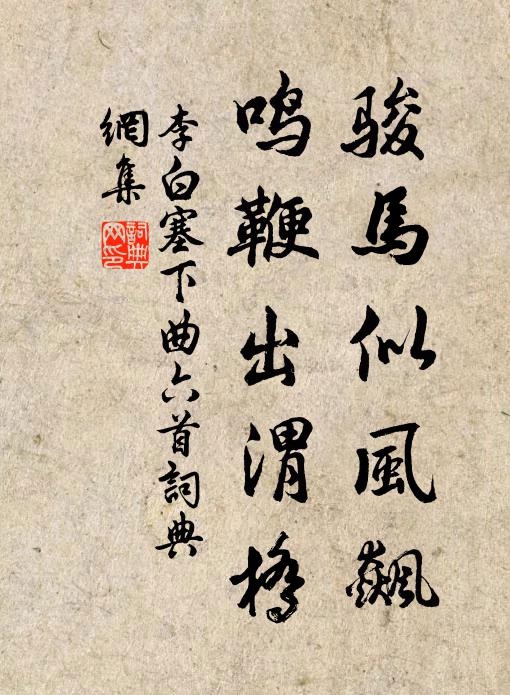 骏馬似風飆
鸣鞭出渭橋
李白塞下曲六首詞典
網集
詞典網印